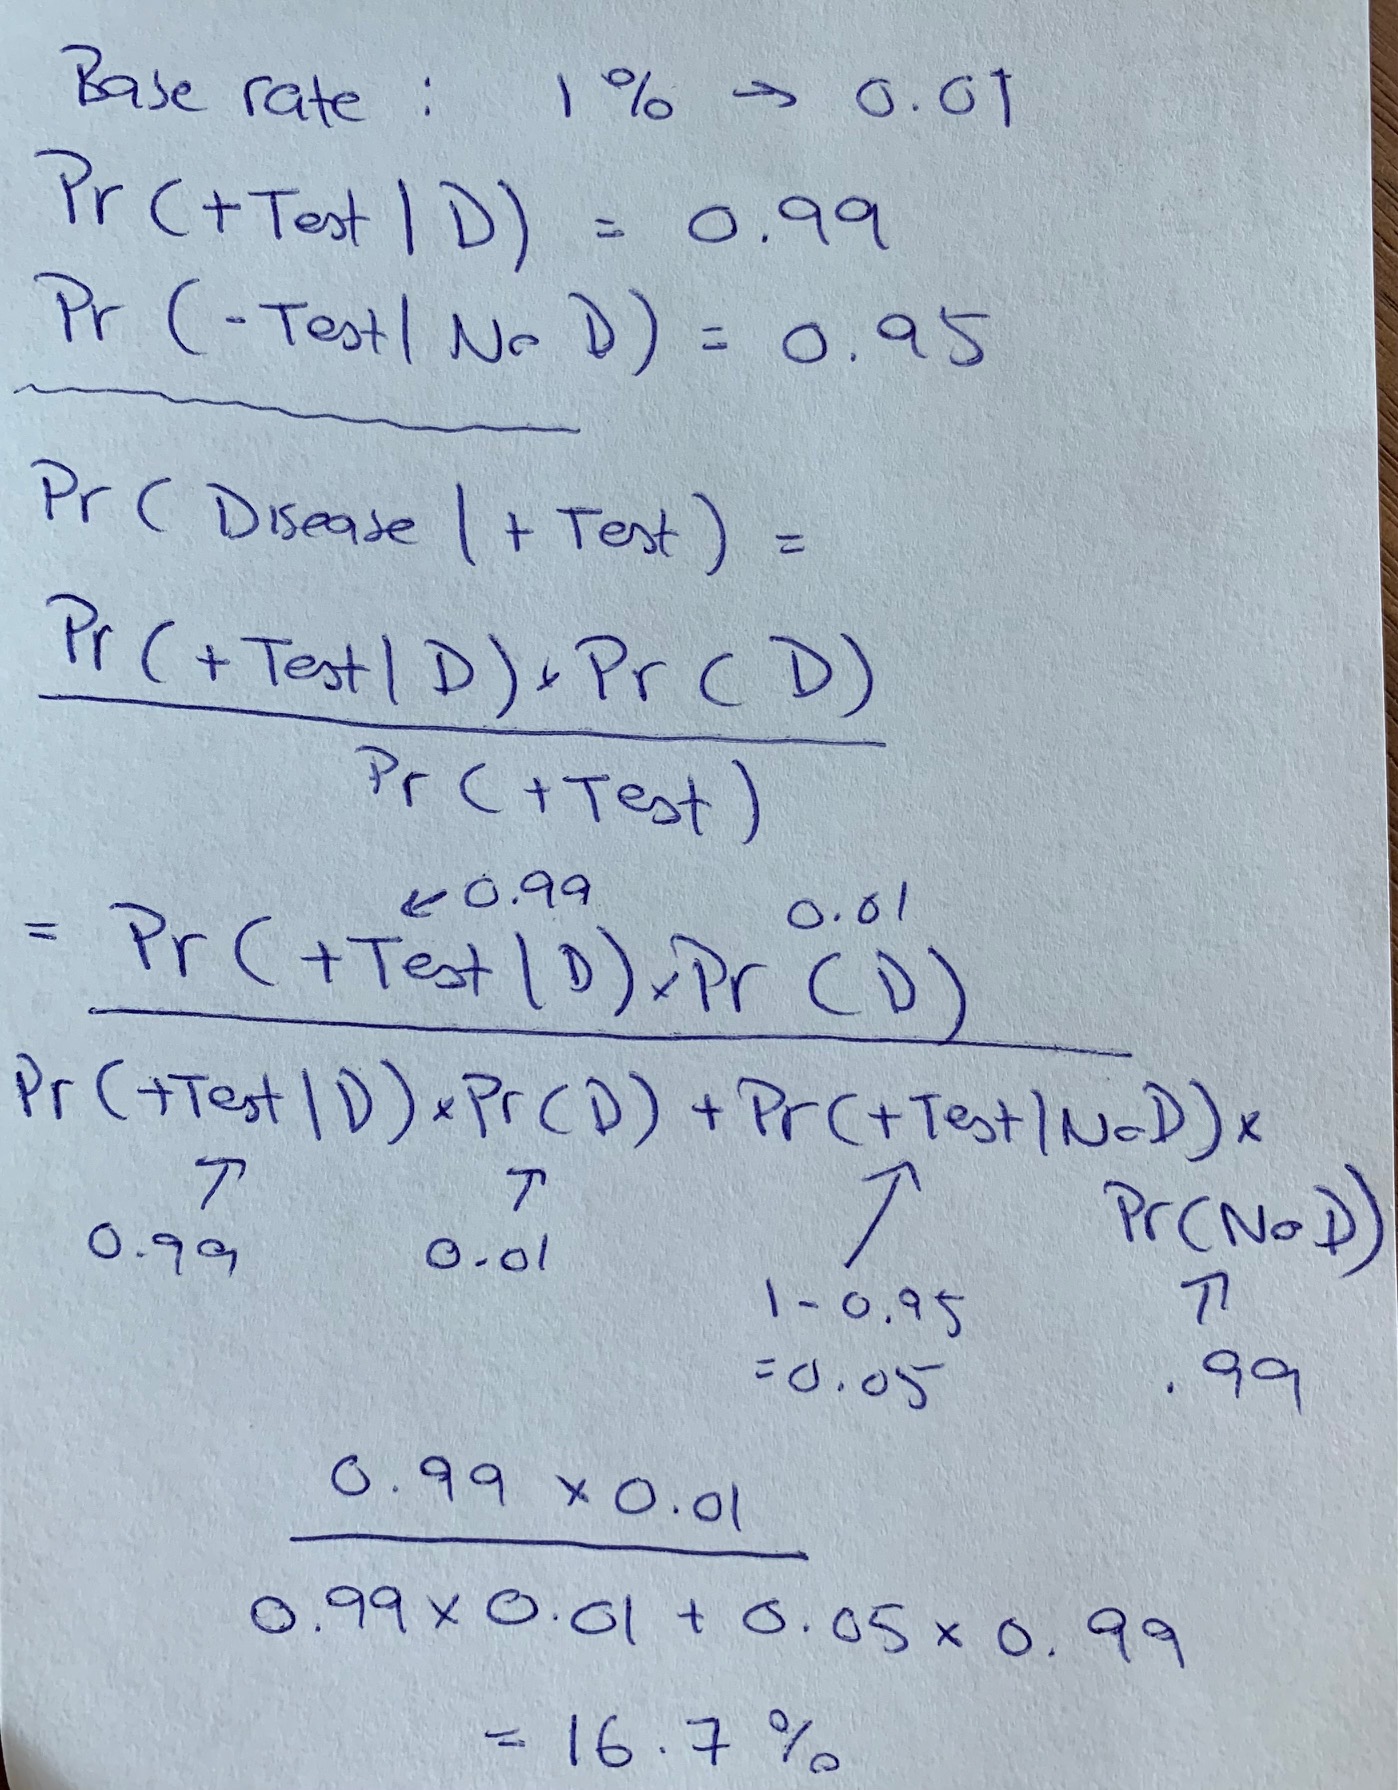 Base rate : 1% → 0.01
Pr (+Test | D) = 0.99
Pr (-Test | No D) = 0.95
Pr ( Disease | + Test ) =
Pr (+Test | D) x Pr (D)
Pr (+Test)
← 0.99 0.01
= Pr (+Test | D) x Pr (D)
Pr (+Test | D) x Pr (D) + Pr (+Test | No D) x
Pr (No D)
↑ ↑ ↑ ↑
0.99 0.01
1-0.95
=0.05 .99
0.99 x 0.01
0.99 x 0.01 + 0.05 x 0.99
= 16.7 %